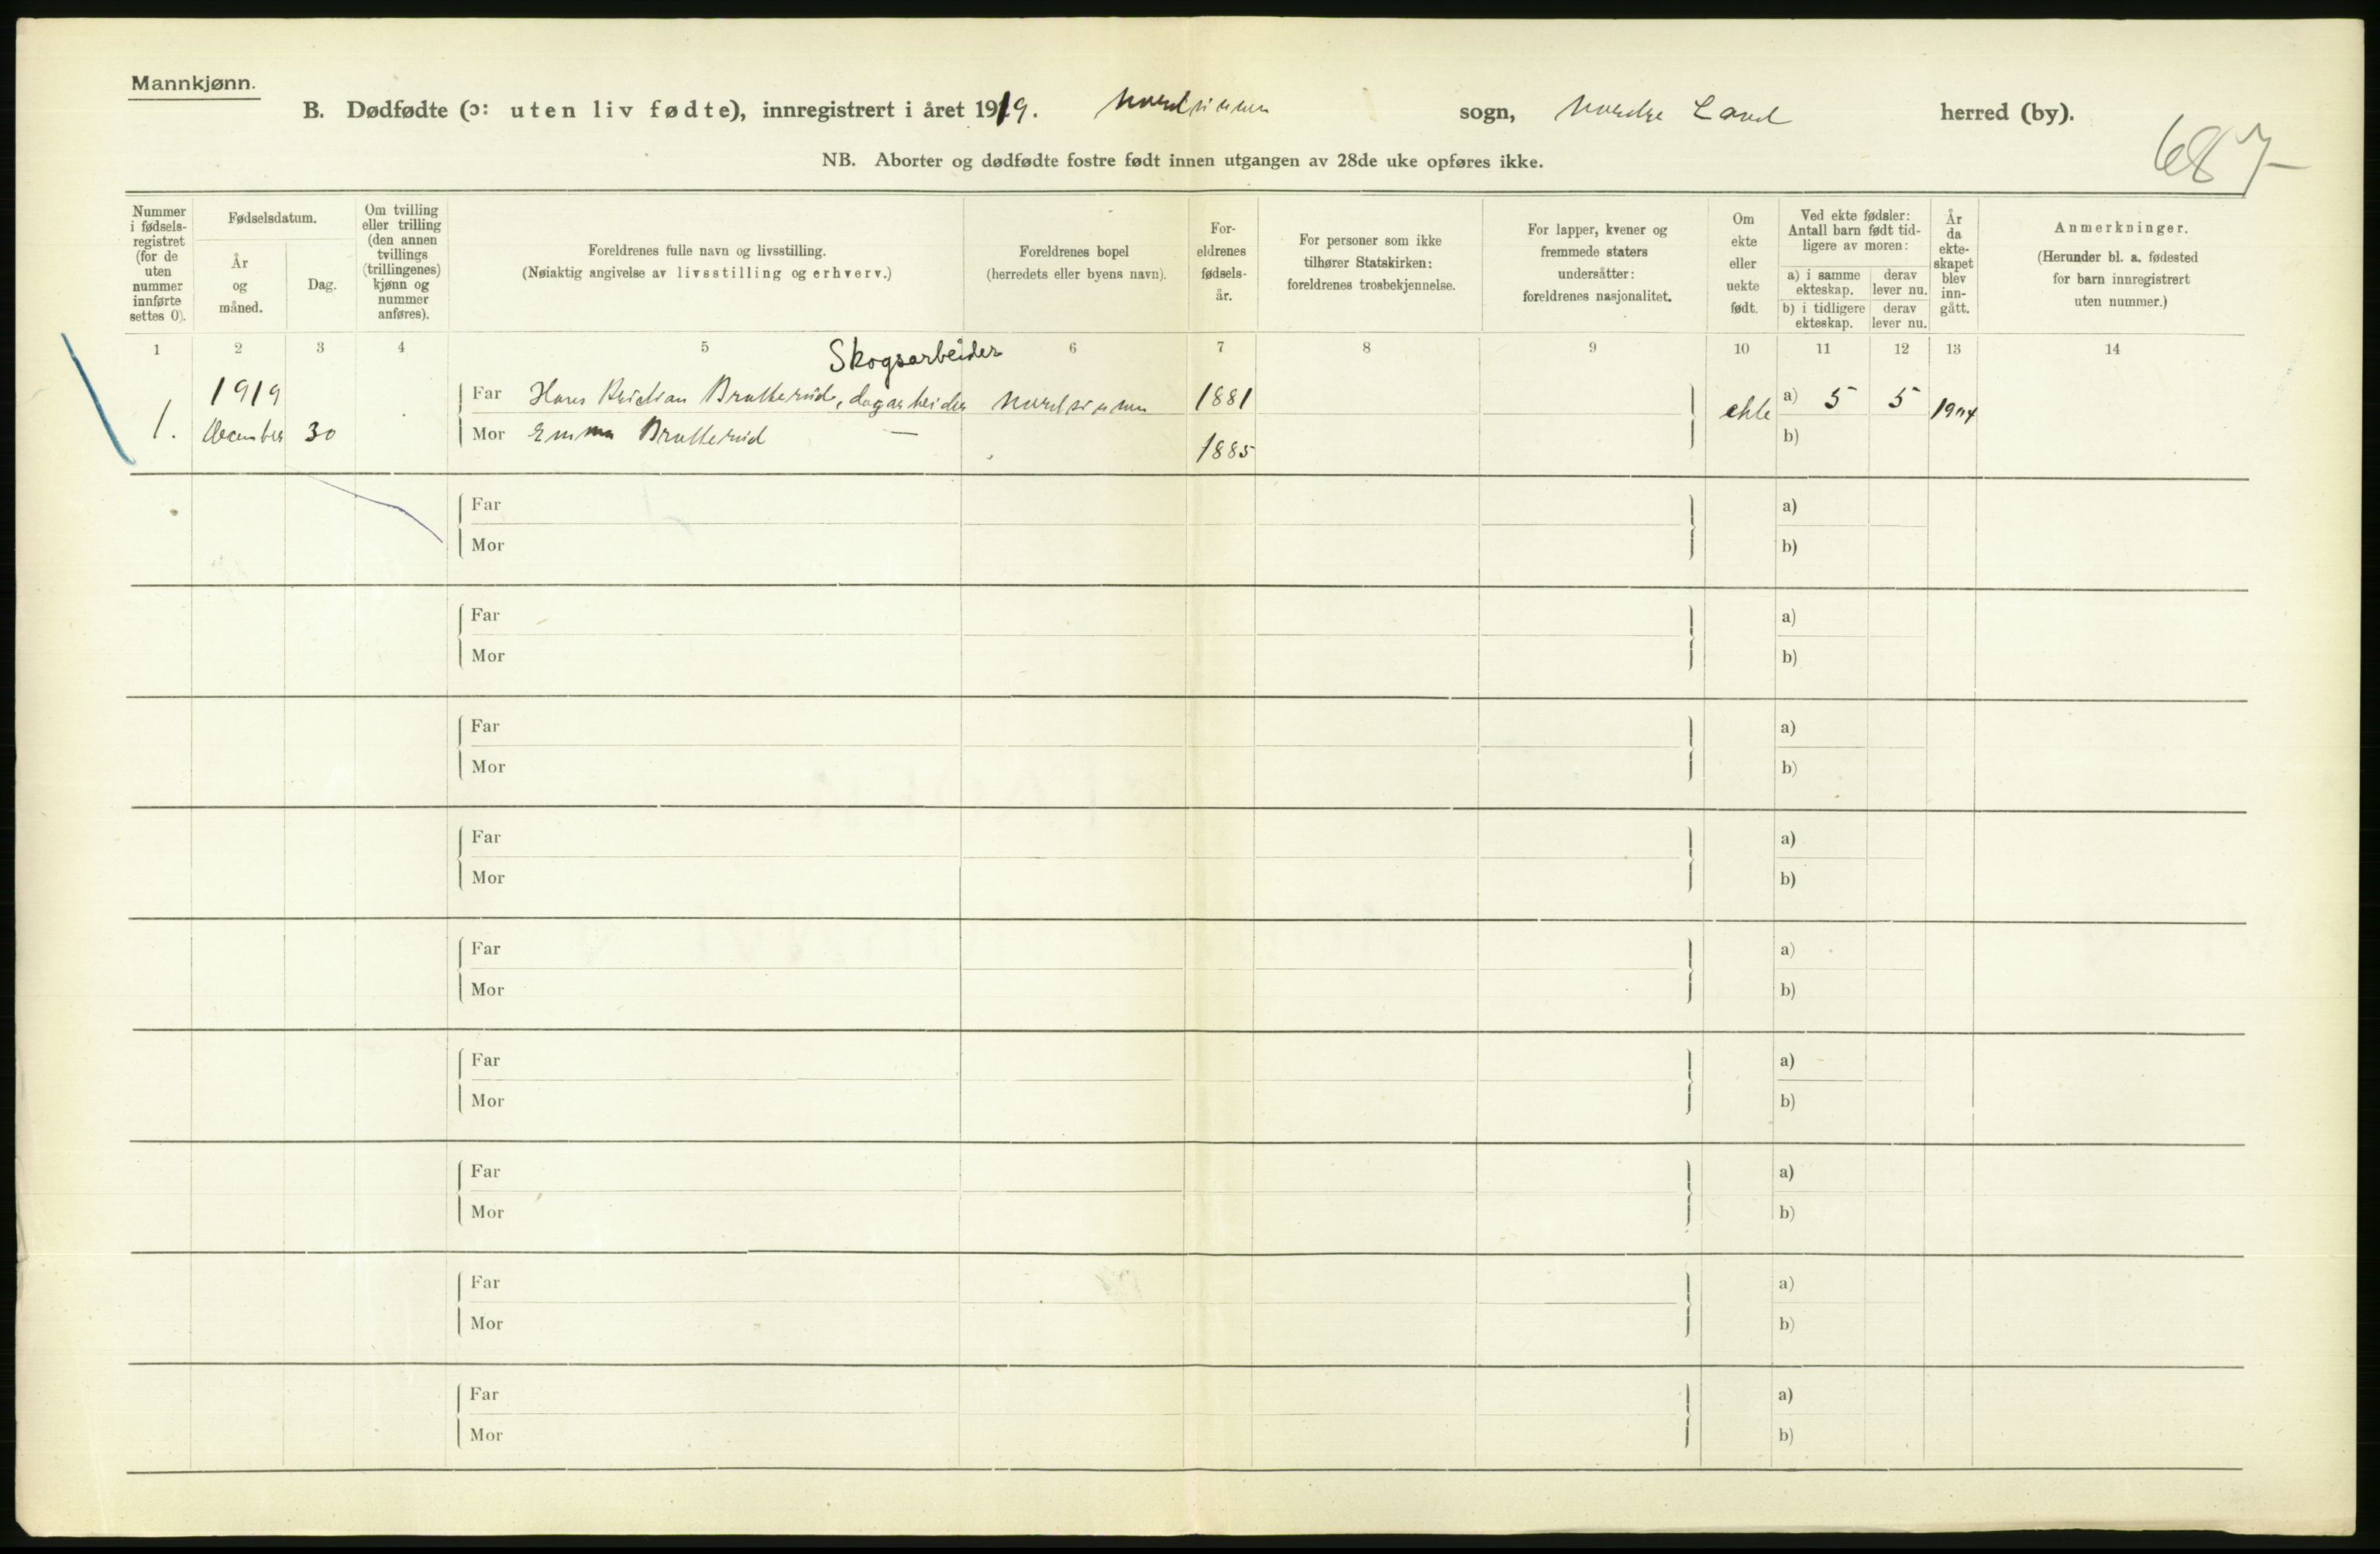 Mannkjønn.
B. Dødfødte (ɔ: uten liv fødte), innregistrert i året 1919. Nordsinnen sogn, Nordre Land herred (by).
NB. Aborter og dødfødte fostre født innen utgangen av 28de uke opføres ikke.
687
Nummer i fødsels-registret (for de uten nummer innførte settes 0).
Fødselsdatum.
År og måned.
Dag.
Om tvilling eller trilling (den annen tvillings (trillingenes) kjønn og nummer anføres).
Foreldrenes fulle navn og livsstilling.
(Nøiaktig angivelse av livsstilling og erhverv.)
Foreldrenes bopel
(herredets eller byens navn).
For-eldrenes fødsels-år.
For personer som ikke tilhører Statskirken: foreldrenes trosbekjennelse.
For lapper, kvener og fremmede staters undersåtter: foreldrenes nasjonalitet.
Om ekte eller uekte født.
Ved ekte fødsler: Antall barn født tid-ligere av moren:
a) i samme ekteskap.
derav lever nu.
b) i tidligere ekteskap.
derav lever nu.
År da ekte-skapet blev inn-gått.
Anmerkninger.
(Herunder bl. a. fødested for barn innregistrert uten nummer.)
1 2 3 4 5 6 7 8 9 10 11 12 13 14
Skogsarbeider
1919
Far Hans Kristian Bratterud, dagarbeider Nordsinnen 1881 ekte a) 5 5 1904
1. December 30
Mor Emma Bratterud — 1885 b)
Far a)
Mor b)
Far a)
Mor b)
Far a)
Mor b)
Far a)
Mor b)
Far a)
Mor b)
Far a)
Mor b)
Far a)
Mor b)
Far a)
Mor b)
Far a)
Mor b)